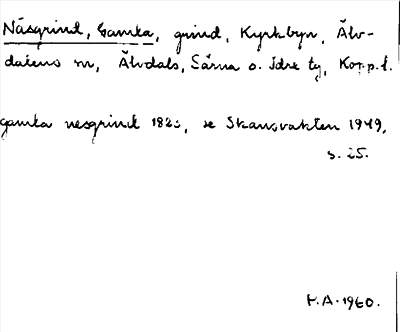 Näsgrind, Gamla, grind, Kyrkbyn, Älv-
dalens sn, Älvdals, Särna o. Idre tg, Kopp. l.
gamla nesgrind 182, se Skansvakten 1949,
s. 25.
F.A. 1960.